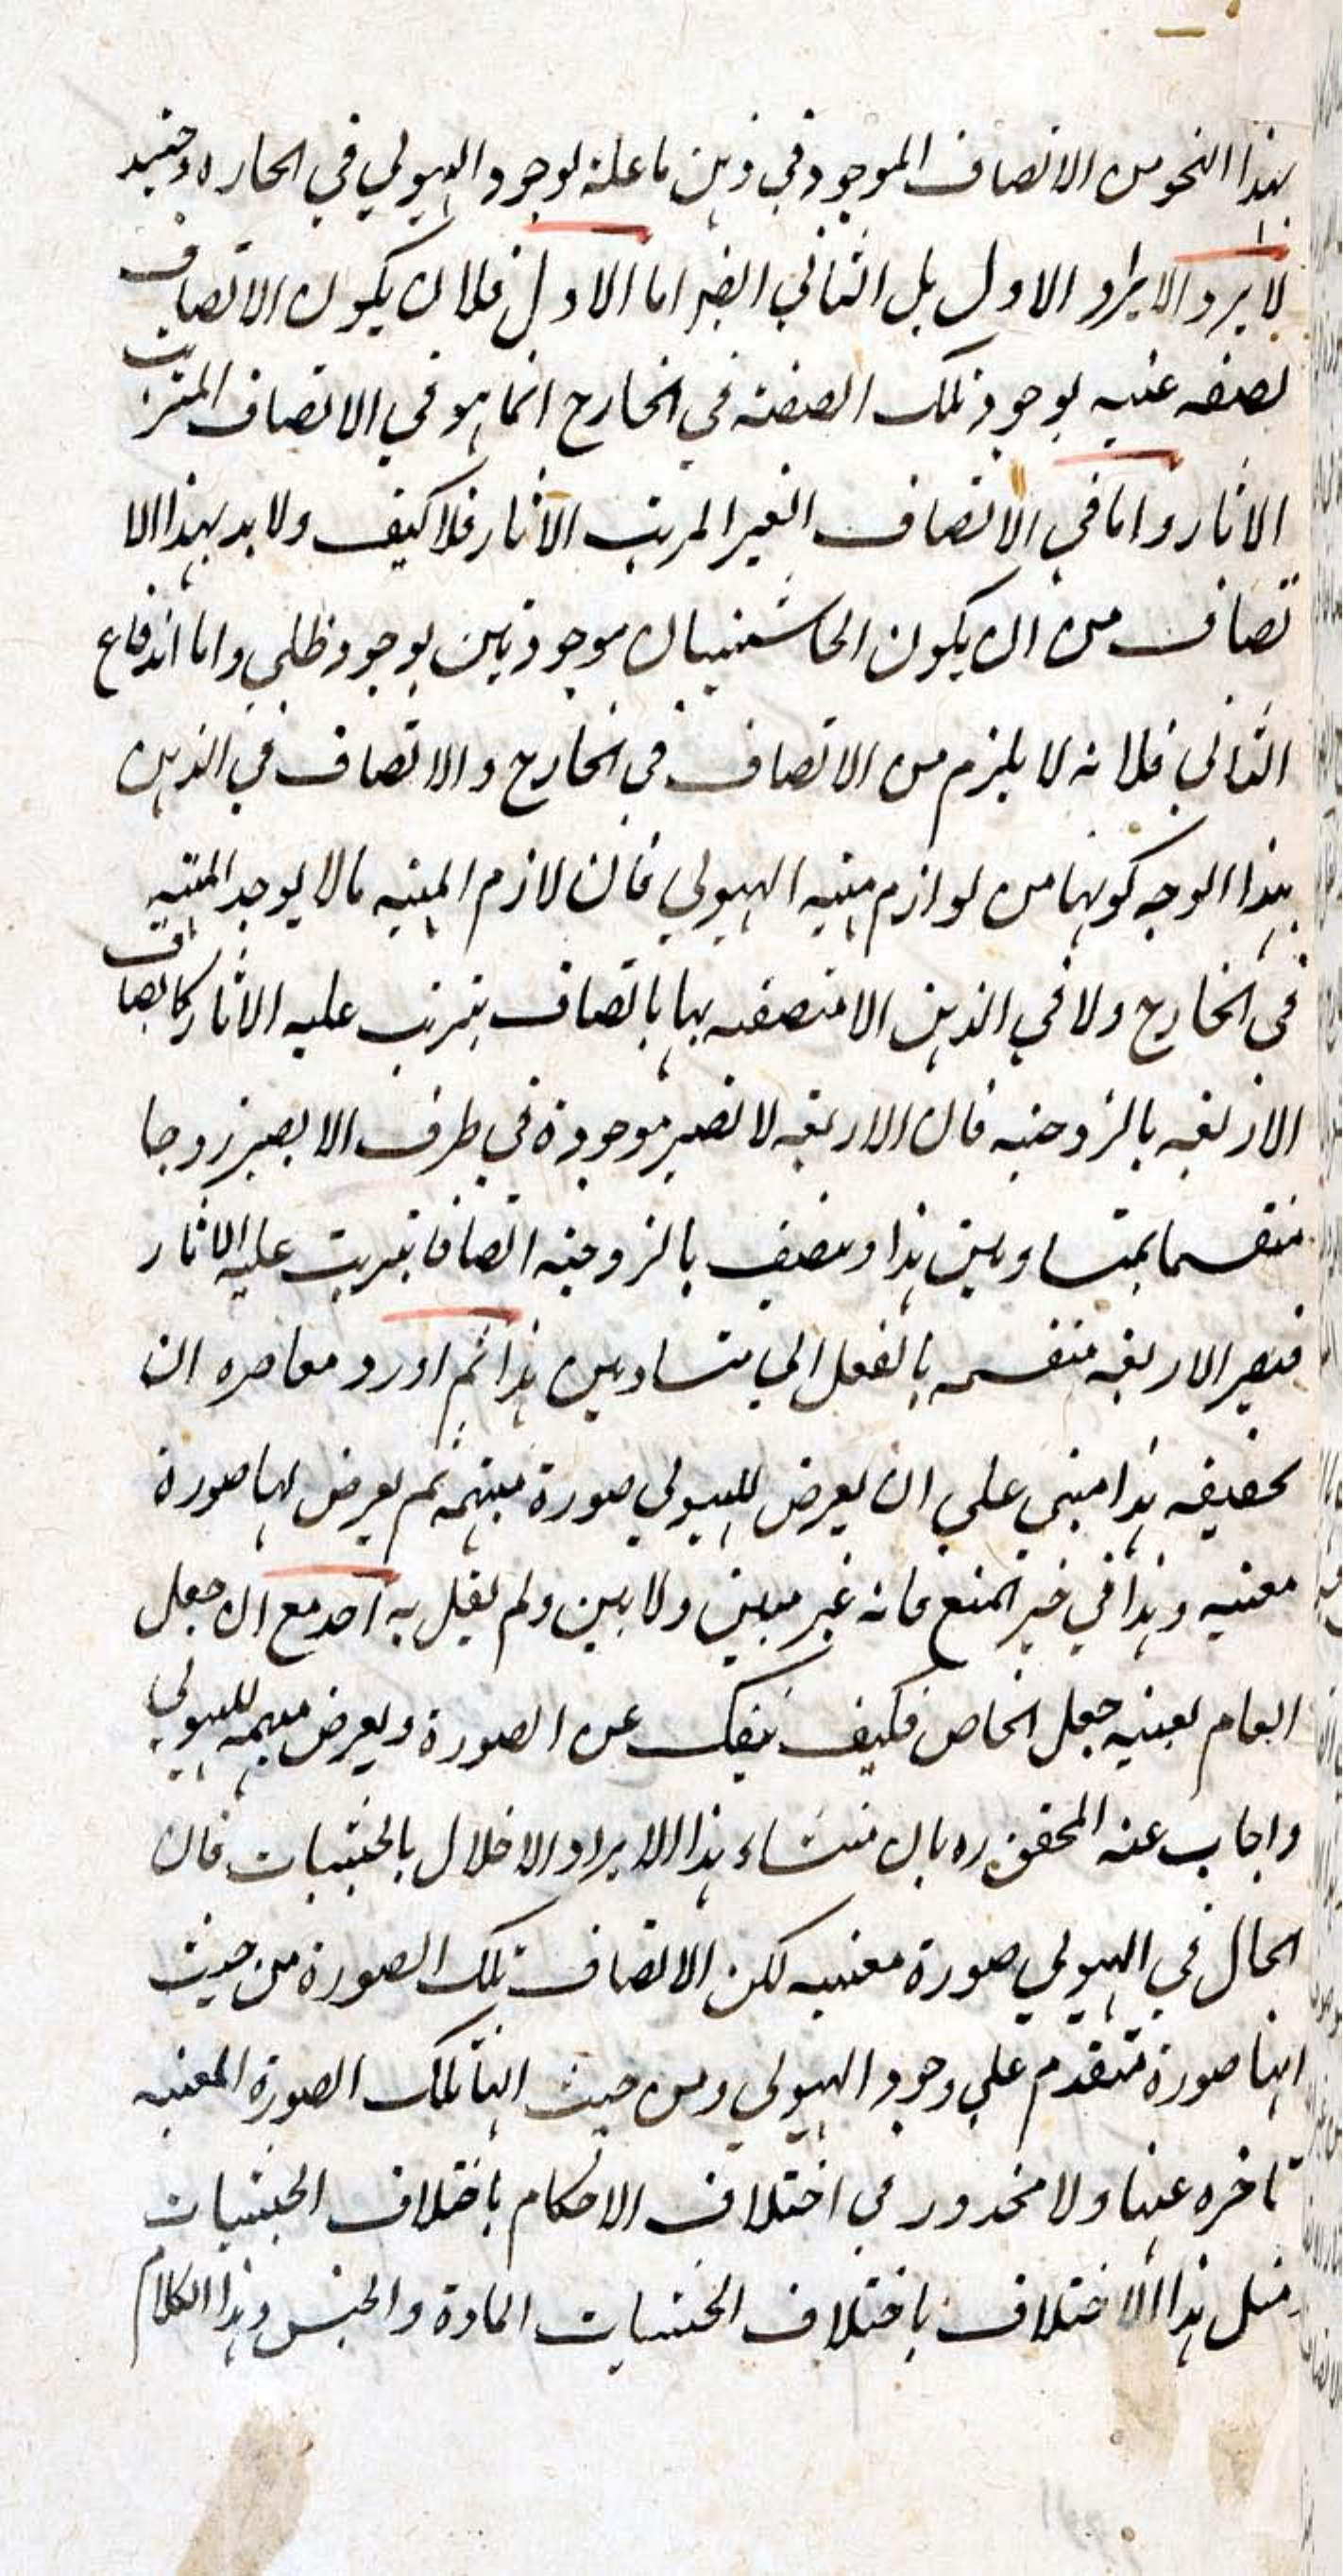 بهذا النحو من الاتصاف الموجود في ذهن ما علة لوجود الهيولي في الخارج وحينئذ
لا يرد الايراد الاول بل الثاني ايضا اما الاول فلان يكون الاتصاف
بصفة عينية بوجود تلك الصفة في الخارج انما هو في الاتصاف المترتب
الاثار واما في الاتصاف الغير المرتب الاثار فلا كيف ولا بد بهذا الا
تصاف من ان يكون الحاشيتان موجودتين بوجود ظلي واما اندفاع
الثاني فلانه لا يلزم من الاتصاف في الخارج والاتصاف في الذهن
بهذا الوجه كونها من لوازم مهية الهيولي فان لازم المهية ما لا يوجد المهية
في الخارج ولا في الذهن الا متصفه بها باتصاف يترتب عليه الاثار كاتصاف
الاربعة بالزوجية فان الاربعة لا تصير موجودة في ظرف الا يصير زوجا
منقسما بمتساويين هذا ويتصف بالزوجية اتصافا يترتب عليه الاثار
فيصير الاربعة منقسمه بالفعل الي متساويين هذا ثم اورد معاصره ان
تحقيقه هذا مبني علي ان يعرض للهيولي صورة مبهمة ثم يعرض لها صورة
معينه وهذا في حيز المنع فانه غير مبين ولا بين ولم يقل به احد مع ان جعل
العام بعينه جعل الخاص فكيف ينفك عن الصورة ويعرض مبهمة للهيولي
واجاب عنه المحقق ره بان منشاء هذا الايراد الاخلال بالحيثيات فان
الحال في الهيولي صورة معينه لكن الاتصاف بتلك الصورة من حيث
انها صورة متقدم علي وجود الهيولي ومن حيث انها تلك الصورة المعينه
تاخره عنها ولا محذور في اختلاف الاحكام باختلاف الحيثيات
مثل هذا الاختلاف باختلاف الحيثيات المادة والجنس وهذا الكلام